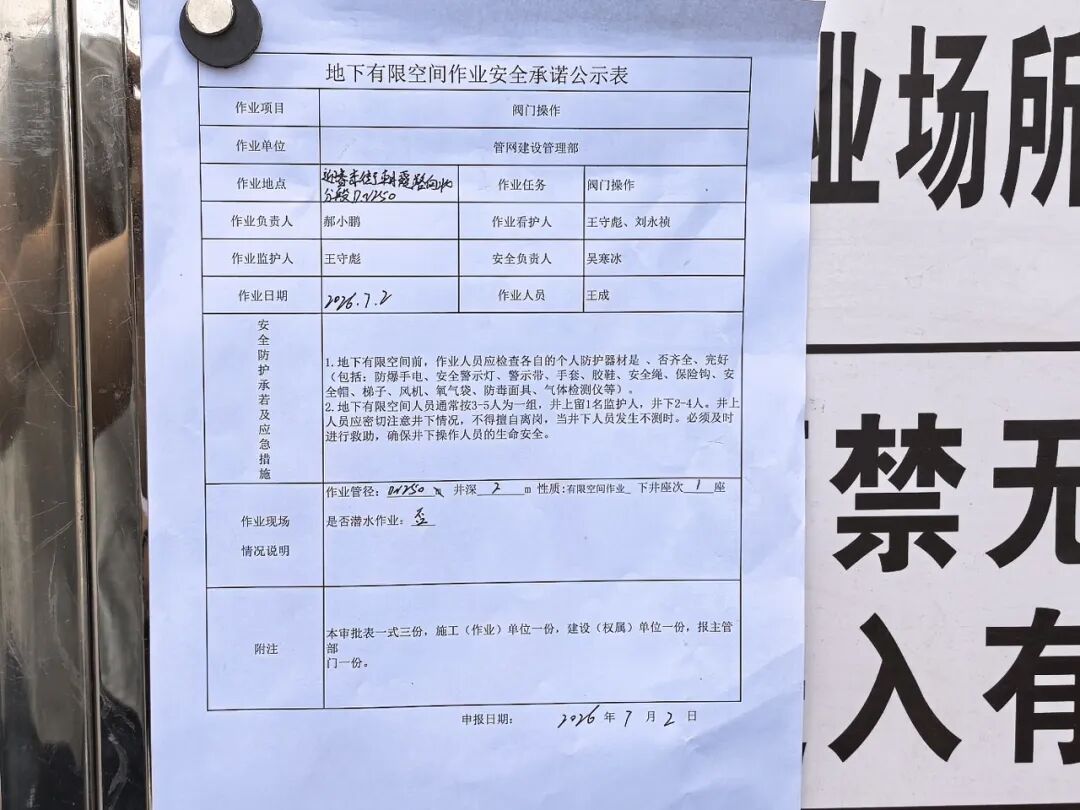 地下有限空间作业安全承诺公示表
作业项目 阀门操作
作业单位 管网建设管理部
作业地点 作业任务 阀门操作
分段DN250
作业负责人 郝小鹏 作业看护人 王守彪、刘永祯
作业监护人 王守彪 安全负责人 吴寒冰
作业日期 2026.7.2 作业人员 王成
安全防护承若及应急措施
1.地下有限空间前，作业人员应检查各自的个人防护器材是 、否齐全、完好
（包括：防爆手电、安全警示灯、警示带、手套、胶鞋、安全绳、保险钩、安
全帽、梯子、风机、氧气袋、防毒面具、气体检测仪等）。
2.地下有限空间人员通常按3-5人为一组，井上留1名监护人，井下2-4人。井上
人员应密切注意井下情况，不得擅自离岗，当井下人员发生不测时。必须及时
进行救助，确保井下操作人员的生命安全。
作业现场
情况说明
作业管径：DN250 井深 2 m 性质:有限空间作业 下井座次 1 座
是否潜水作业：否
附注
本审批表一式三份，施工（作业）单位一份，建设（权属）单位一份，报主管
部
门一份。
申报日期： 2026 年 7 月 2 日
业场所
禁无
入有